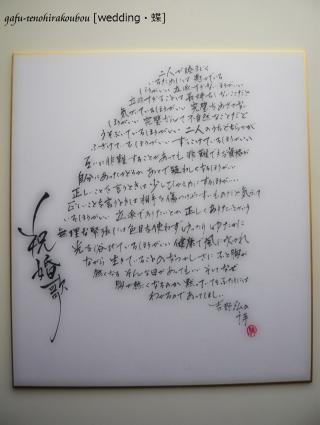 gafu-tenohirakoubou [wedding・蝶]
二人が睦まじく
いるためには 愚かでいる
ほうがいい 立派すぎないほうがいい
立派すぎることは 長持ちしないことだと
気付いているほうがいい 完璧をめざさない
ほうがいい 完璧なんて不自然なことだと
うそぶいているほうがいい 二人のうちどちらかが
ふざけているほうがいい ずっこけているほうがいい
互いに非難することがあっても 非難できる資格が
自分にあったかどうか あとで疑わしくなるほうがいい
正しいことを言うときは 少しひかえめにするほうがいい
正しいことを言うときは 相手を傷つけやすいものだと気付いて
いるほうがいい 立派でありたいとか 正しくありたいとかいう
無理な緊張には 色目を使わず ゆったり ゆたかに
光を浴びているほうがいい 健康で風に吹かれ
ながら 生きていることのなつかしさに ふと胸が
熱くなる そんな日があってもいい そしてなぜ
胸が熱くなるのか 黙っていてもふたりには
わかるのであってほしい
吉野弘の
祝婚歌